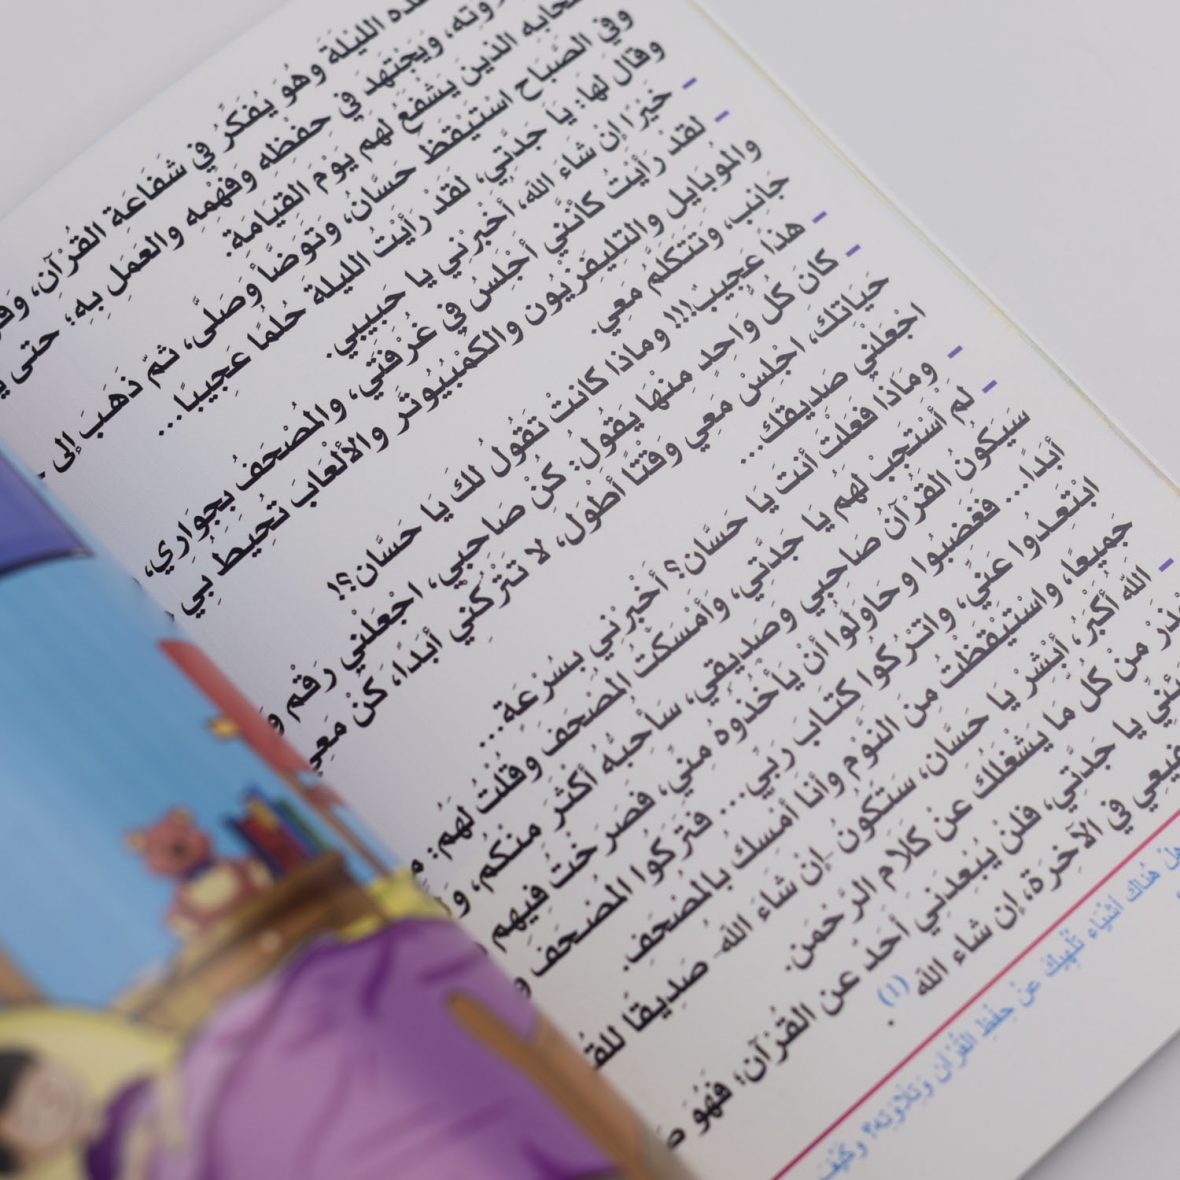 الليلة وهو يُفَكِّرُ في شَفَاعَةِ القُرْآنِ،
ويَجْتَهِدُ في حِفْظِهِ وفَهْمِهِ والعَمَلِ بِهِ؛ حتى
الذين يَشْفَعُ لهم يَوْمَ القيَامَةِ.
وفي الصَّبَاحِ اسْتَيْقَظَ حَسَّانُ، وتَوَضَّأَ وَصَلَّى، ثمّ ذَهَبَ إلى
وقال لها: يَا جَدَّتي، لَقَدْ رَأَيْتُ الليلَةَ حُلْمًا عَجِيبًا...
- خَيْرًا إنْ شَاءَ الله، أَخْبِرْني يا حَبِيبي.
- لَقَدْ رَأَيْتُ كَأَنَّنِي أَجْلِسُ في غُرْفَتي، والمُصْحَفُ بِجِوَارِي،
والمُوبَايل والتليفزيُون والكُمْبيُوتَر والأَلْعَاب تُحِيطُ بِي
جَانِبٍ، وتَتَكَلَّمُ مَعِي.
- هذَا عَجِيبٌ!!! ومَاذا كانتْ تَقُول لَكَ يَا حَسَّان؟!
- كَانَ كلُّ وَاحِدٍ مِنْهَا يقُولُ: كُنْ صَاحِبِي، اجْعَلْنِي رَقْم
حَيَاتِكَ، اجْلِسْ مَعِي وَقْتًا أَطْوَل، لا تَتْرُكْنِي أبَدًا، كُنْ مَعِي
اجْعَلْنِي صَديقَكَ...
- ومَاذَا فَعَلْتَ أنتَ يَا حَسَّان؟ أَخْبِرْنِي بسُرْعَةٍ...
- لَمْ أَسْتَجِبْ لَهُم يَا جَدَّتِي، وَأَمْسَكْتُ المُصْحَفَ وقُلْتُ لَهُم:
سَيَكُونُ القُرْآنُ صَاحِبِي وصَدِيقِي، سَأُحِبُّهُ أَكْثَرَ مِنْكُم،
أبَدًا... فَغَضِبُوا وحَاوَلُوا أن يَأْخُذُوهُ مِنِّي، فَصَرَخْتُ فِيهِم
ابْتَعِدُوا عَنِّي، واتْرُكُوا كِتَابَ رَبِّي.... فَتَركُوا المُصْحَفَ
جَمِيعًا، واسْتَيْقَظْتُ مِن النَّوْمِ وأنا أَمْسِكُ بالمُصْحَفِ.
- اللهُ أَكْبَرُ، أَبْشِرْ يَا حَسَّان، سَتَكُونُ -إنْ شَاءَ اللهُ- صَدِيقًا
مِنْ كُلِّ مَا يَشْغَلُكَ عَنْ كَلَامِ الرَّحْمَنِ.
يا جَدَّتِي، فلَنْ يُبْعِدَنِي أَحَدٌ عَنِ القُرْآنِ؛ فَهُوَ
في الآخِرَةِ، إن شَاءَ الله (1).
هُنَاكَ أشْيَاء تُلْهِيكَ عَنْ حِفْظِ القُرْآنِ وَتِلَاوَتِه؟ وكَيْفَ